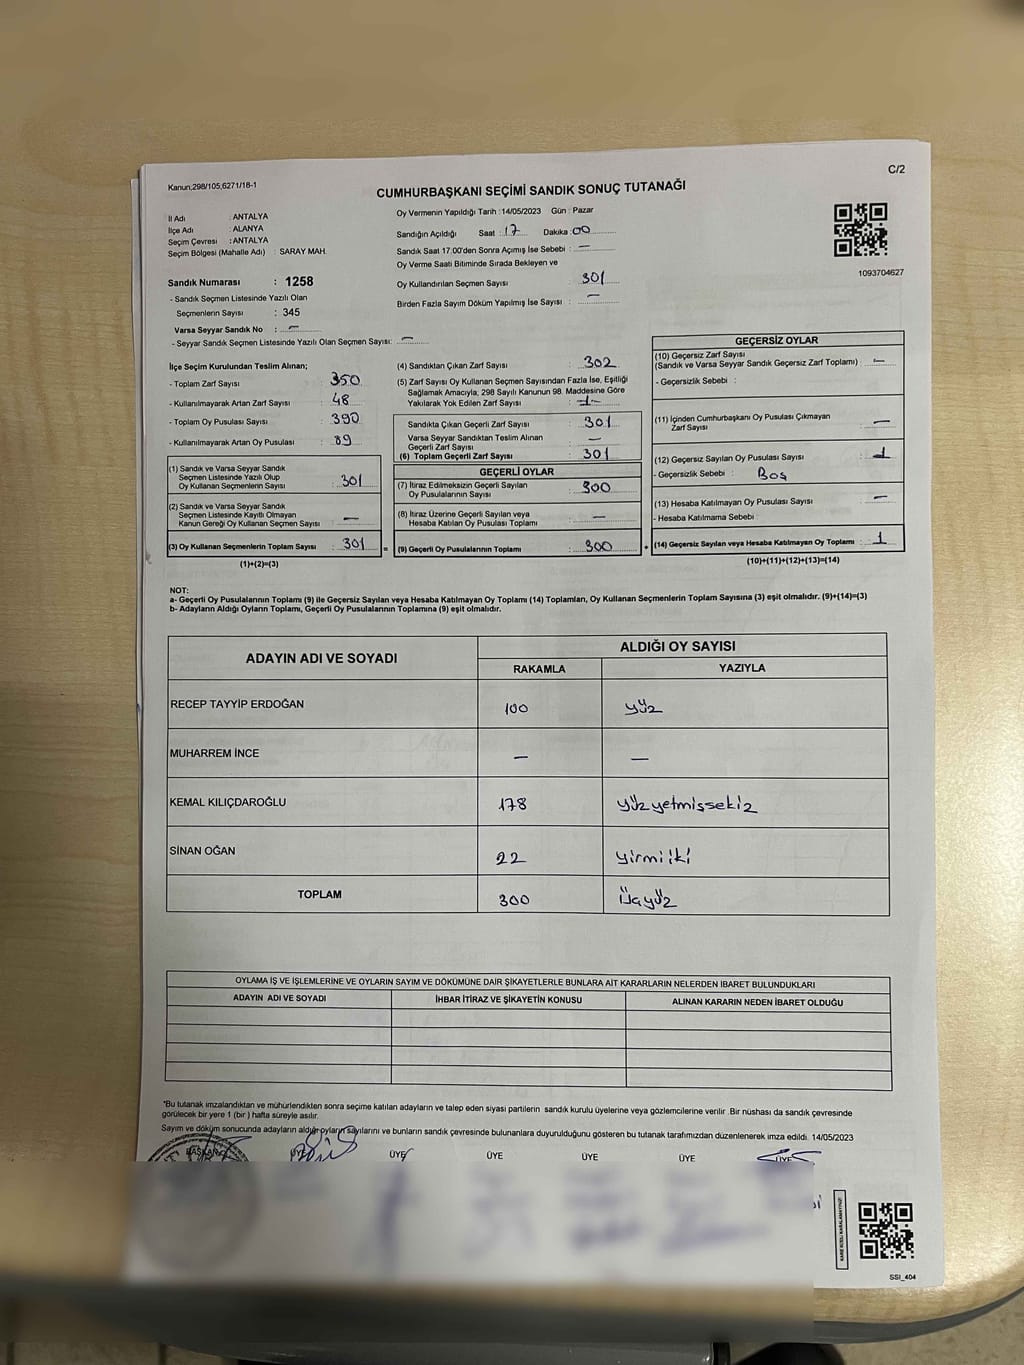 C/2
Kanun,298/105;6271/18-1
CUMHURBAŞKANI SEÇİMİ SANDIK SONUÇ TUTANAĞI
İl Adı : ANTALYA
İlçe Adı : ALANYA
Seçim Çevresi : ANTALYA
Seçim Bölgesi (Mahalle Adı) : SARAY MAH.
Oy Vermenin Yapıldığı Tarih :14/05/2023 Gün : Pazar
Sandığın Açıldığı Saat : 17 Dakika : 00
Sandık Saat 17:00'den Sonra Açımış İse Sebebi : —
Oy Verme Saati Bitiminde Sırada Bekleyen ve
Oy Kullandırılan Seçmen Sayısı : 301
Birden Fazla Sayım Döküm Yapılmış İse Sayısı : —
1093704627
Sandık Numarası : 1258
- Sandık Seçmen Listesinde Yazılı Olan
Seçmenlerin Sayısı : 345
Varsa Seyyar Sandık No : —
- Seyyar Sandık Seçmen Listesinde Yazılı Olan Seçmen Sayısı: —
İlçe Seçim Kurulundan Teslim Alınan;
- Toplam Zarf Sayısı : 350
- Kullanılmayarak Artan Zarf Sayısı : 48
- Toplam Oy Pusulası Sayısı : 390
- Kullanılmayarak Artan Oy Pusulası : 89
(1) Sandık ve Varsa Seyyar Sandık
Seçmen Listesinde Yazılı Olup
Oy Kullanan Seçmenlerin Sayısı : 301
(2) Sandık ve Varsa Seyyar Sandık
Seçmen Listesinde Kayıtlı Olmayan
Kanun Gereği Oy Kullanan Seçmen Sayısı : —
(3) Oy Kullanan Seçmenlerin Toplam Sayısı : 301
(1)+(2)=(3)
(4) Sandıktan Çıkan Zarf Sayısı : 302
(5) Zarf Sayısı Oy Kullanan Seçmen Sayısından Fazla İse, Eşitliği
Sağlamak Amacıyla, 298 Sayılı Kanunun 98. Maddesine Göre
Yakılarak Yok Edilen Zarf Sayısı : -1-
Sandıkta Çıkan Geçerli Zarf Sayısı : 301
Varsa Seyyar Sandıktan Teslim Alınan
Geçerli Zarf Sayısı : —
(6) Toplam Geçerli Zarf Sayısı : 301
GEÇERLİ OYLAR
(7) İtiraz Edilmeksizin Geçerli Sayılan
Oy Pusulalarının Sayısı : 300
(8) İtiraz Üzerine Geçerli Sayılan veya
Hesaba Katılan Oy Pusulası Toplamı : —
= (9) Geçerli Oy Pusulalarının Toplamı : 300
GEÇERSİZ OYLAR
(10) Geçersiz Zarf Sayısı
(Sandık ve Varsa Seyyar Sandık Geçersiz Zarf Toplamı) : —
- Geçersizlik Sebebi :
(11) İçinden Cumhurbaşkanı Oy Pusulası Çıkmayan
Zarf Sayısı : —
(12) Geçersiz Sayılan Oy Pusulası Sayısı : 1
- Geçersizlik Sebebi : Boş
(13) Hesaba Katılmayan Oy Pusulası Sayısı : —
- Hesaba Katılmama Sebebi :
+ (14) Geçersiz Sayılan veya Hesaba Katılmayan Oy Toplamı : 1
(10)+(11)+(12)+(13)=(14)
NOT:
a- Geçerli Oy Pusulalarının Toplamı (9) ile Geçersiz Sayılan ve Hesaba Katılmayan Oy Toplamı (14) Toplamları, Oy Kullanan Seçmenlerin Toplam Sayısına (3) eşit olmalıdır. (9)+(14)=(3)
b- Adayların Aldığı Oyların Toplamı, Geçerli Oy Pusulalarının Toplamına (9) eşit olmalıdır.
ADAYIN ADI VE SOYADI ALDIĞI OY SAYISI
RAKAMLA YAZIYLA
RECEP TAYYİP ERDOĞAN 100 yüz
MUHARREM İNCE — —
KEMAL KILIÇDAROĞLU 178 yüzyetmişsekiz
SİNAN OĞAN 22 yirmiiki
TOPLAM 300 üçyüz
OYLAMA İŞ VE İŞLEMLERİNE VE OYLARIN SAYIM VE DÖKÜMÜNE DAİR ŞİKAYETLERLE BUNLARA AİT KARARLARIN NELERDEN İBARET BULUNDUKLARI
ADAYIN ADI VE SOYADI İHBAR İTİRAZ VE ŞİKAYETİN KONUSU ALINAN KARARIN NEDEN İBARET OLDUĞU
*Bu tutanak imzalandıktan ve mühürlendikten sonra seçime katılan adayların ve talep eden siyasi partilerin sandık kurulu üyelerine veya gözlemcilerine verilir .Bir nüshası da sandık çevresinde
görülecek bir yere 1 (bir ) hafta süreyle asılır.
Sayım ve döküm sonucunda adayların aldığı oyların sayılarını ve bunların sandık çevresinde bulunanlara duyurulduğunu gösteren bu tutanak tarafımızdan düzenlenerek imza edildi. 14/05/2023
BAŞKAN ÜYE ÜYE ÜYE ÜYE ÜYE ÜYE
KARE KODU KARALAMAYINIZ!
SSI_404